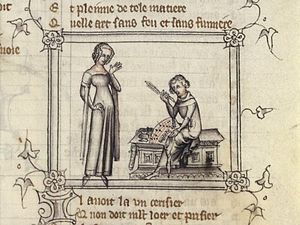 E t plenne de tele matiere
Q uelle art sans feu et sans fumiere
uoie
I l auoit la vn cerisier
Q uon doit mlt loer et prisier